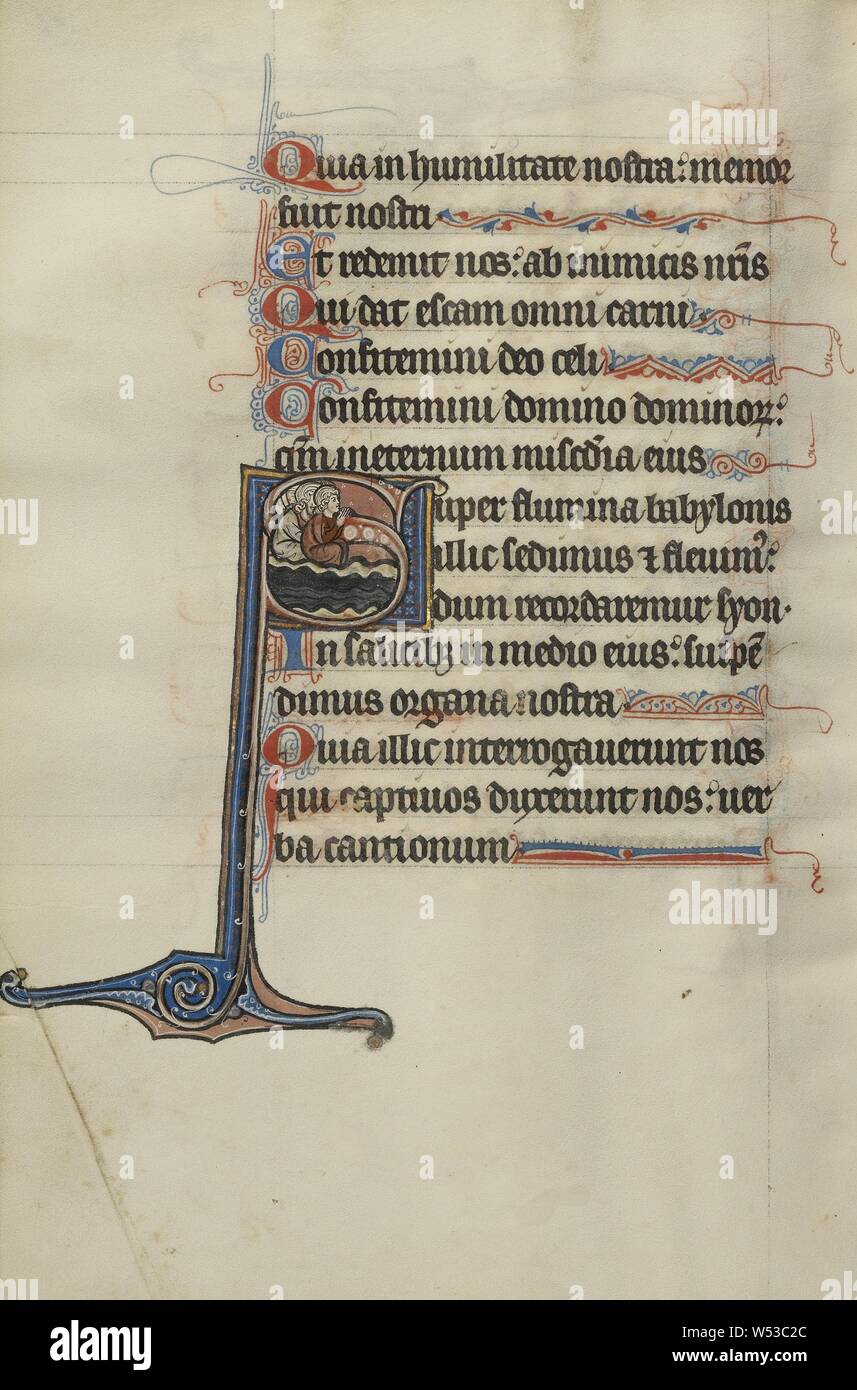 Quia in humilitate nostra: memor
fuit nostri
Et redemit nos: ab inimicis nr̄is
Qui dat escam omni carni
Confitemini deo celi
Confitemini domino dominoꝝ:
qm̄ ineternum misc̄dia eius
Super flumina babylonis
illic sedimus ⁊ fleuimꝰ:
dum recordaremur syon.
In salicibꝫ in medio eius: suspē
dimus organa nostra
Quia illic interrogauerunt nos
qui captiuos duxerunt nos: uer
ba cantionum
alamy
alamy
alamy
alamy
Image ID: W53C2C
www.alamy.com